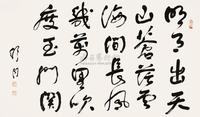 明月出天
山蒼茫雲
海間長風
幾萬里吹
度玉門關